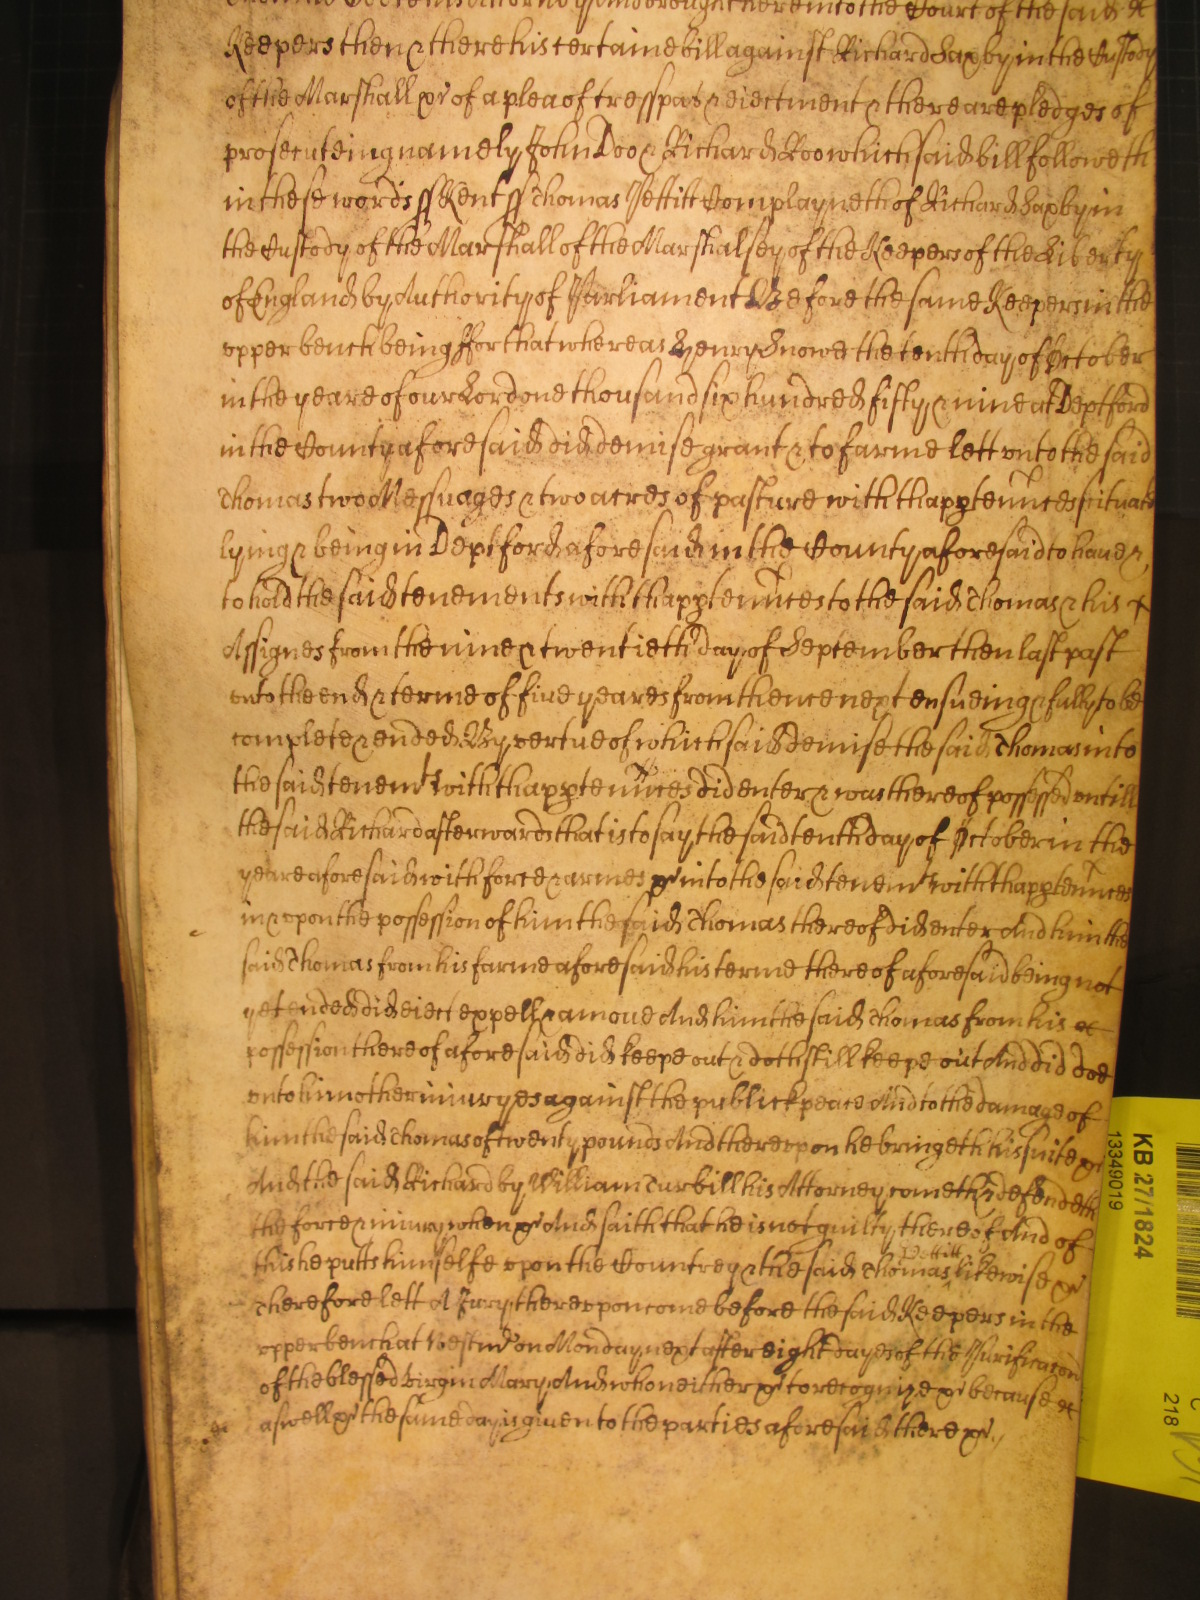 his Attorney and brought here into the Court of the said
Keepers then & there his certaine bill against Richard Saxby in the Custody
of the Marshall &c of a plea of tresspas & eiectment & there are pledges of
prosecuteing namely John Doo & Richard Roo which said bill followeth
in these words ss Kent ss Thomas Pettitt Complayneth of Richard Saxby in
the Custody of the Marshall of the Marshalsey of the Keepers of the Liberty
of England by Authority of Parliament Before the same Keepers in the
vpper bench being ffor that whereas Henry Snowe the tenth day of October
in the yeare of our Lord one thousand six hundred fifty & nine at Deptford
in the County aforesaid did demise grant & to farme lett vnto the said
Thomas two Messuages & two acres of pasture with thapptennces situate
lying & being in Deptford aforesaid in the County aforesaid to haue &
to hold the said tenements with thapptennces to the said Thomas & his
Assignes from the nine & twentieth day of September then last past
vnto the end & terme of fiue yeares from thence next ensueing & fully to be
complete & ended By vertue of which said demise the said Thomas into
the said tenemts with thapptennces did enter & was thereof possessed vntill
the said Richard afterwards that is to say the said tenth day of October in the
yeare aforesaid with force & armes &c into the said tenemts with thapptennces
in & vpon the possession of him the said Thomas thereof did enter And him the
said Thomas from his farme aforesaid his terme thereof aforesaid being not
yet ended did eiect expell & amoue And him the said Thomas from his
possession thereof aforesaid did keepe out & doth still keepe out And did doe
vnto him other iniuryes against the publick peace And to the damage of
him the said Thomas of twenty pounds And therevpon he bringeth his suite &c
And the said Richard by William Turbill his Attorney cometh & defendeth
the force & iniury when &c And saith that he is not guilty thereof And of
this he putts himselfe vpon the Countrey & the said Thomas Pettitt likewise &c
Therefore lett A Jury therevpon come before the said Keepers in the
vpper bench at Westmr on Monday next after eight dayes of the Purificacon
of the blessed Virgin Mary And who neither &c to recognize &c because
aswell &c the same day is giuen to the parties aforesaid there &c
KB 27/1824
13349019
218